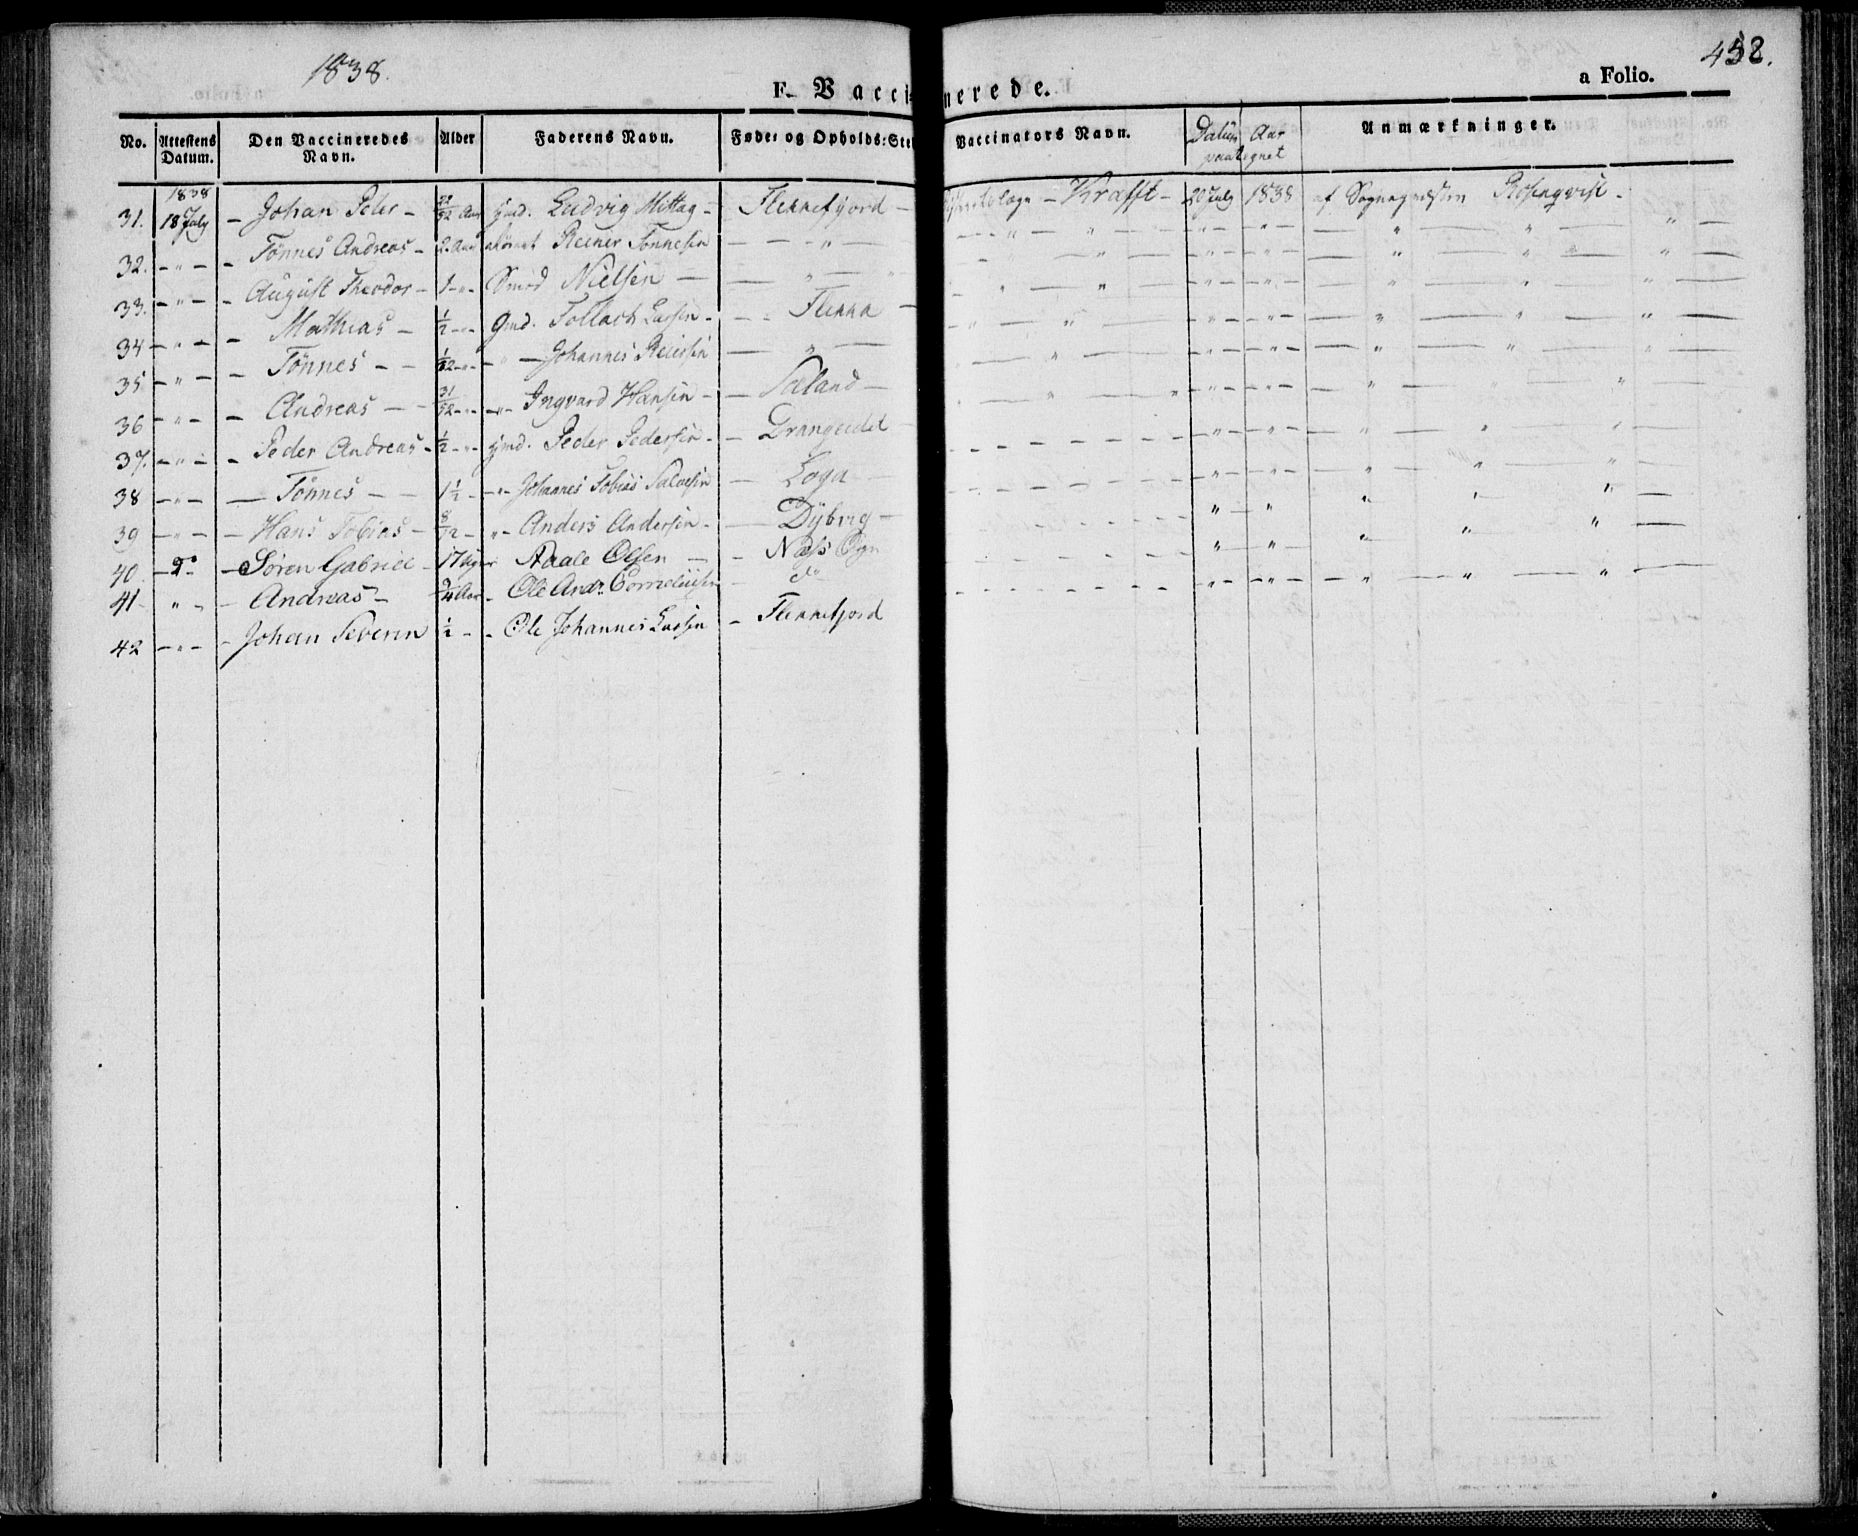 1838.
458.
F. Vaccinerede.
a Folio.
No. Attestens Datum. Den Vaccineredes Navn. Alder Faderens Navn. Føde- og Opholds-Sted Vaccinators Navn. Datum Aar paategnet Anmærkninger.
1838
31. 18 July - Johan Peter - 22/52 Aar Gmd. Ludvig Mittag - Flekkefjord - læge - Krafft - 20 July 1838 af Sognepræsten Rosenqvist -
32. - " - - Tønnes Andreas - 2 Aar Reiner Tønnesen - - " -
33. - " - - August Theodor - 1 - " - Smed Nielsen - - " -
34 - " - - Mathias - 1/2 - " - Gmd. Tollach Larsen - - - Flekka -
35 - " - - Tønnes - - " - " - Johannes Reiersen - " -
36 - " - - Andreas - - 31/52 - " - - " - Ingvard Hansen - - Sæland -
37. - " - - Peder Andreas - 1/2 - " - Gmd. Peder Pedersen - - Drangeidet -
38 - " - - Tønnes - - 1 1/2 - - " - Johannes Tobias Salvesen - Loga -
39 - " - - Hans Tobias - - " - Anders Andersen - - Dybvig -
40 - d° - - Søren Gabriel - 17 Aale Olsen - - Næss
41 - " - - Andreas - Aar - Ole Andr. Corneliusen - d°
42 - " - - Johan Severin 1/2 - - Ole Johannes Larsen - Flekkefjord